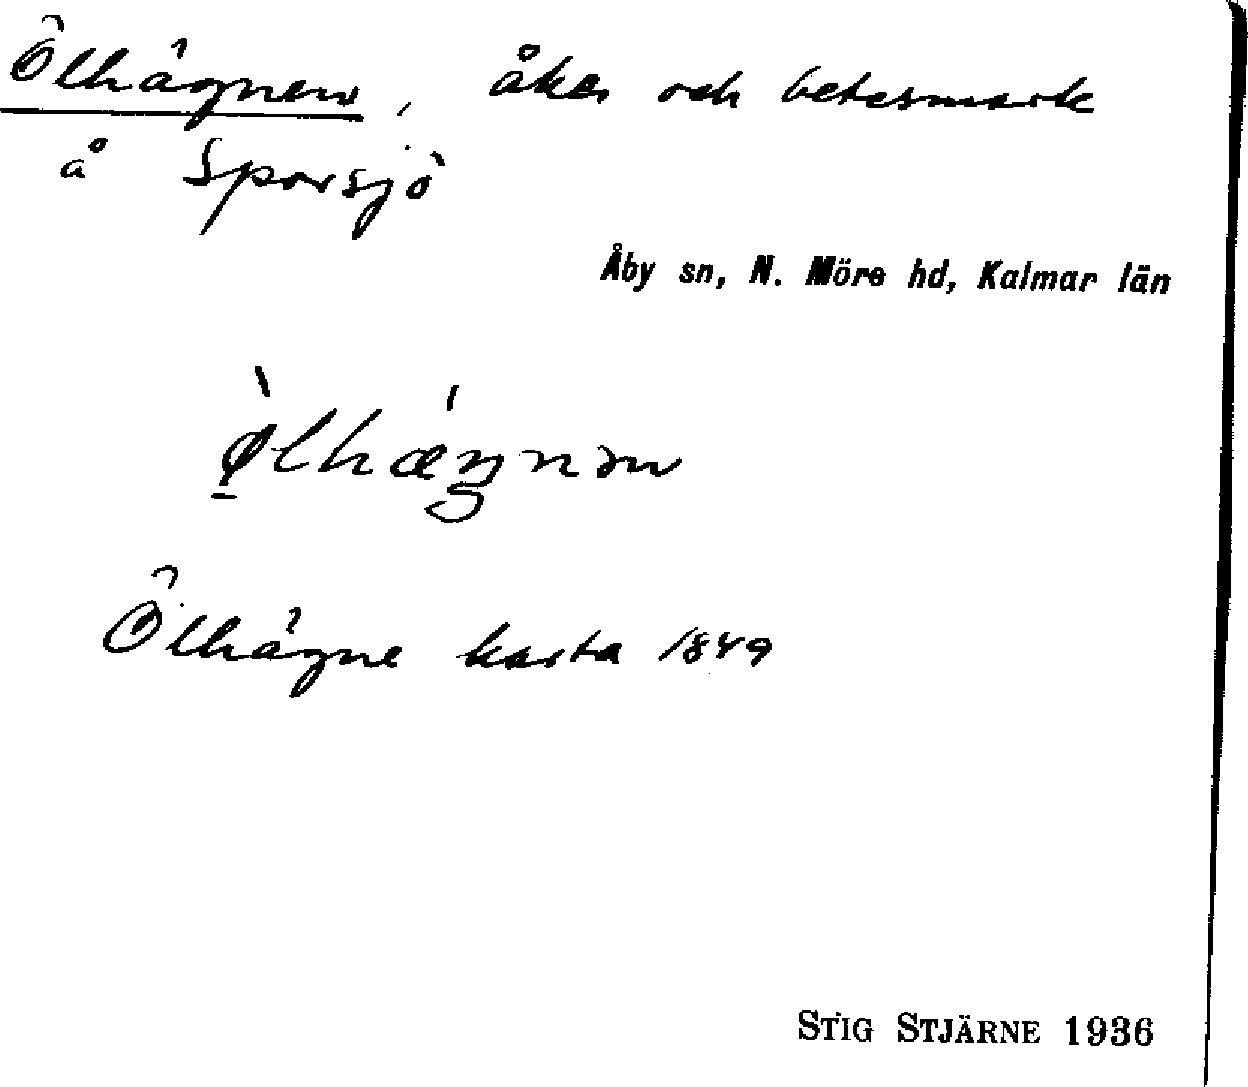 Ölhägnen, åker och betesmark
å Sporsjö
Åby sn, N. Möre hd, Kalmar län
Ölhägne karta 1849
STIG STJÄRNE 1936